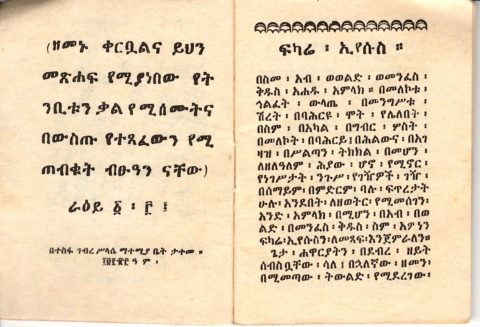 (ዘመኑ ቀርቧልና ይህን
መጽሐፍ የሚያነበው የት
ንቢቱን ቃል የሚሰሙትና
በውስጡ የተጻፈውን የሚ
ጠብቁት ብፁዓን ናቸው)
ራዕይ ፩ ፡ ፫ ፤
በተስፋ ገብረ ሥላሴ ማተሚያ ቤት ታተመ ።
ዓ ም ፡
ፍካሬ ፡ ኢየሱስ ።
በስመ ፡ አብ ፡ ወወልድ ፡ ወመንፈስ ፡
ቅዱስ ፡ አሐዱ ፡ አምላክ ። በመለኮቱ ፡
ኅልፈት ፡ ውላጤ ፡ በመንግሥቱ ፡
ሽረት ፡ በባሕርዩ ፡ ሞት ፡ የሌለበት ፡
በስም ፡ በአካል ፡ በግብር ፡ ሦስት ፡
በመለኮት ፡ በባሕርይ ፡ በሕልውና ፡ በአገ
ዛዝ ፡ በሥልጣን ፡ ትክክል ፡ በመሆን ፡
ለዘለዓለም ፡ ሕያው ፡ ሆኖ ፡ የሚኖር ፡
የነገሥታት ፡ ንጉሥ ፡ የገዥዎች ፡ ገዥ ፡
በሰማይም ፡ በምድርም ፡ ባሉ ፡ ፍጥረታት
ሁሉ ፡ አንደበት ፡ ለዘወትር ፡ የሚመሰገን ፡
አንድ ፡ አምላክ ፡ በሚሆን ፡ በአብ ፡ በወ
ልድ ፡ በመንፈስ ፡ ቅዱስ ፡ ስም ፡ አምነን
ፍካሬ ፡ ኢየሱስን ፡ ለመጻፍ ፡ እንጀምራለን ።
ጌታ ፡ ሐዋርያትን ፡ በደብረ ፡ ዘይት
ሰብስቧቸው ፡ ሳለ ፤ በኋለኛው ፡ ዘመን ፡
በሚመጣው ፡ ትውልድ ፡ የሚደረገው ፡